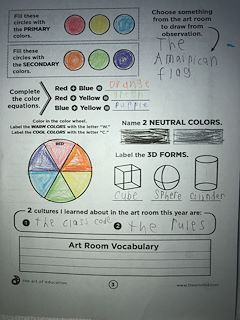 Fill these
circles with
the PRIMARY
colors.
Fill these
circles with
the SECONDARY
colors.
Choose something
from the art room
to draw from
observation.
The
Amaipican
flag
Complete
the color
equations.
Red + Blue = orange
Red + Yellow = green
Blue + Yellow = purple
Color in the color wheel.
Label the WARM COLORS with the letter "W."
Label the COOL COLORS with the letter "C."
RED
Name 2 NEUTRAL COLORS.
Label the 3D FORMS.
Cube
Sphere
Cylinder
2 cultures I learned about in the art room this year are:
1 the class code
2 the rules
Art Room Vocabulary
the art of education
3